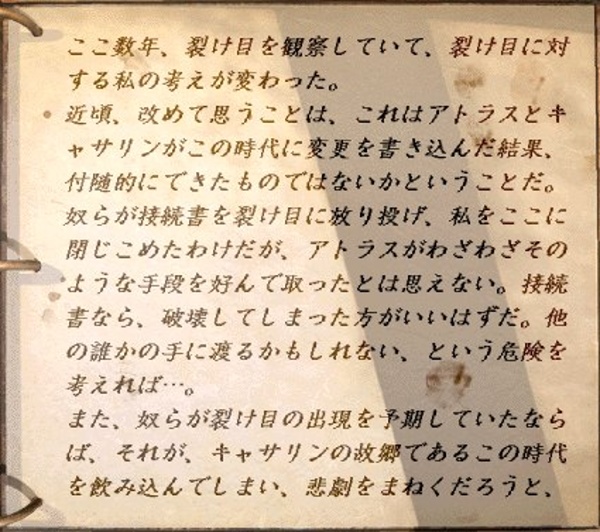 ここ数年、裂け目を観察していて、裂け目に対
する私の考えが変わった。
近頃、改めて思うことは、これはアトラスとキ
ャサリンがこの時代に変更を書き込んだ結果、
付随的にできたものではないかということだ。
奴らが接続書を裂け目に放り投げ、私をここに
閉じこめたわけだが、アトラスがわざわざその
ような手段を好んで取ったとは思えない。接続
書なら、破壊してしまった方がいいはずだ。他
の誰かの手に渡るかもしれない、という危険を
考えれば…。
また、奴らが裂け目の出現を予期していたなら
ば、それが、キャサリンの故郷であるこの時代
を飲み込んでしまい、悲劇をまねくだろうと、